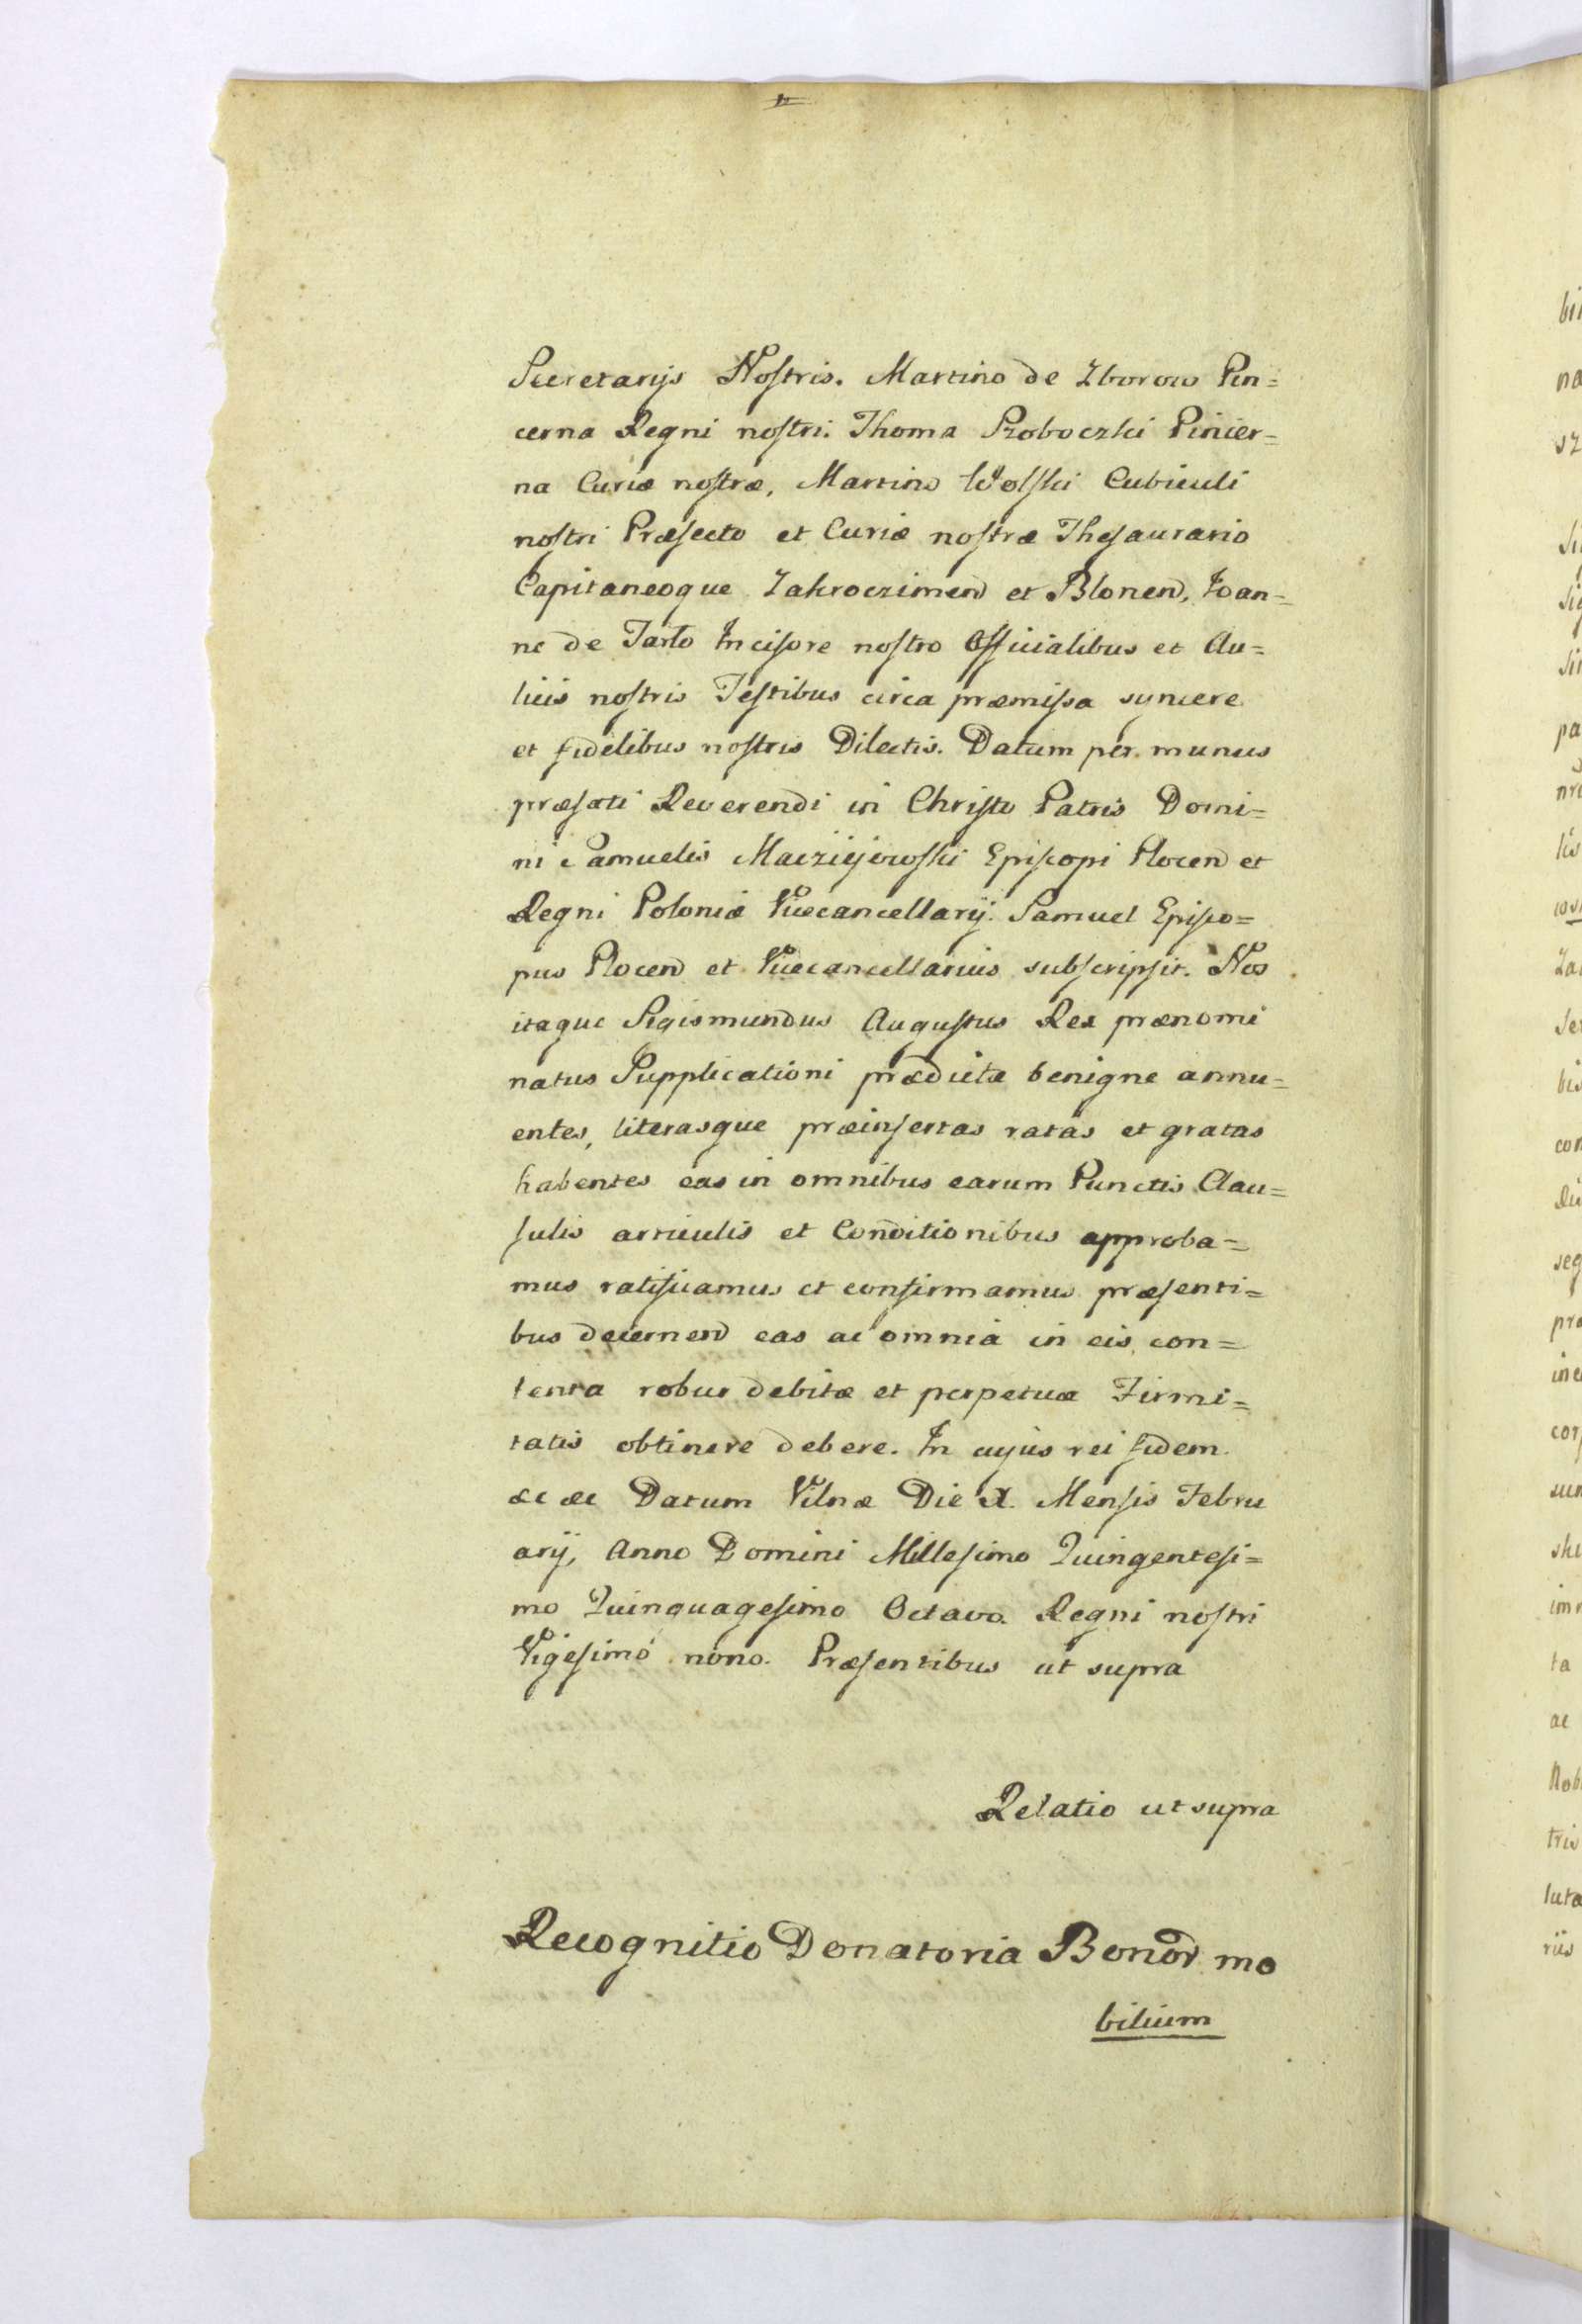 Secretarijs Nostris. Martino de Zborow Pin=
cerna Regni nostri. Thoma Proboczki Pincer=
na Curiæ nostræ, Martino Wolski Cubiculi
nostri Præfecto et Curiæ nostræ Thesaurario
Capitaneoque Zakroczimen et Blonen, Ioan=
ne de Tarlo Incisore nostro Officialibus et Au=
licis nostris Testibus circa præmissa syncere
et fidelibus nostris Dilectis. Datum per manus
præfati Reverendi in Christo Patris Domi=
ni Samuelis Macziejowski Episcopi Plocen et
Regni Poloniæ Vicecancellarij. Samuel Episco=
pus Plocen et Vicecancellarius subscripsit. Nos
itaque Sigismundus Augustus Rex prænomi
natus Supplicationi prædictæ benigne annu=
entes, literasque præinsertas ratas et gratas
habentes eas in omnibus earum Punctis Clau=
sulis articulis et Conditionibus approba=
mus ratificamus et confirmamus præsenti=
bus decernen eas ac omnia in eis con=
tenta robur debitæ et perpetuæ Firmi=
tatis obtinere debere. In cujus rei fidem
&c &c Datum Vilnæ Die X. Mensis Febru
arij, Anno Domini Millesimo Quingentesi=
mo Quinquagesimo Octavo. Regni nostri
Vigesimo nono. Præsentibus ut supra
Relatio ut supra
Recognitio Donatoria Bonor mo
bilium